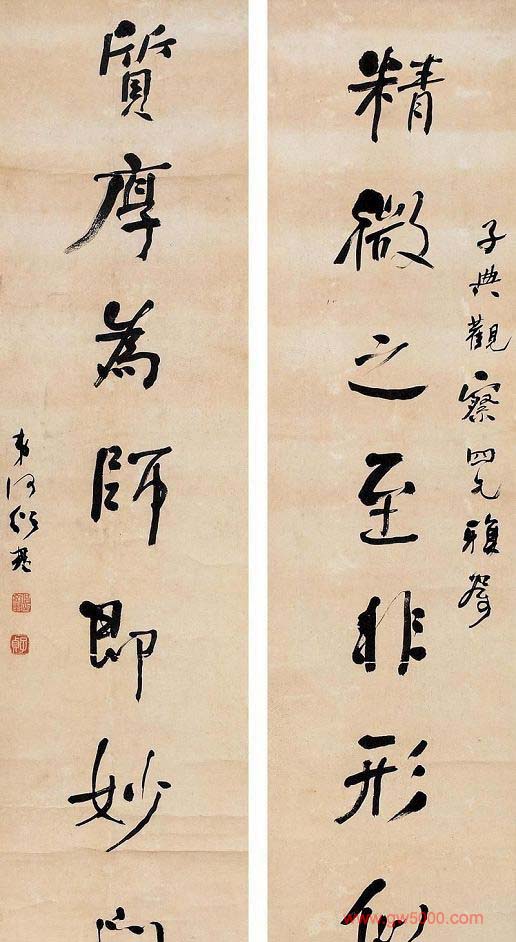 子典觀察四兄雅詧
精微之至非形似
質厚為師即妙
弟何紹基
www.gw5000.com